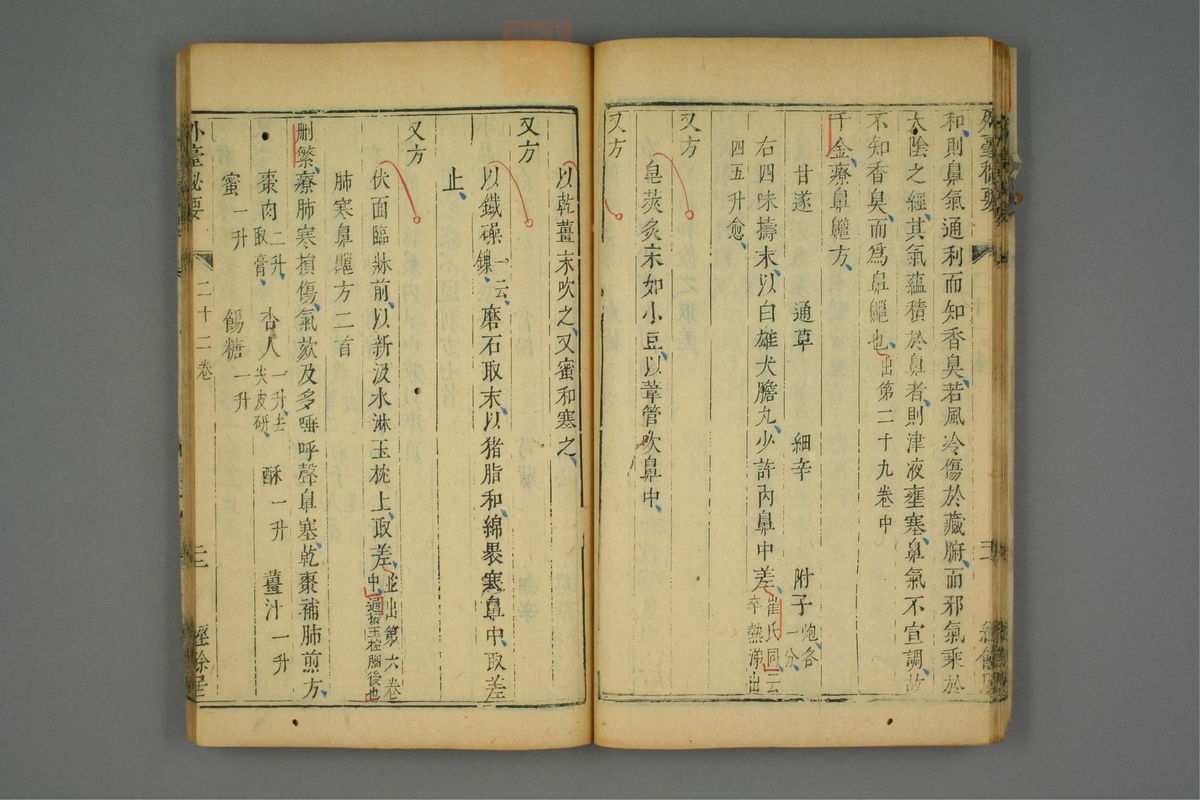 外臺秘要
和則鼻氣通利而知香臭若風冷傷於藏腑而邪氣乘於
太陰之經其氣蘊積於鼻者則津液壅塞鼻氣不宣調故
不知香臭而為鼻齆也出第二十九卷中
千金療鼻齆方
甘遂 通草 細辛 附子炮各一分
右四味擣末以白雄犬膽丸少許內鼻中差崔氏同云卒熱涕出
四五升愈
又方
皂莢炙末如小豆以葦管吹鼻中
又方
以乾薑末吹之又蜜和塞之
又方
以鐵磲鏁一云磨石取末以猪脂和綿褁塞鼻中取差
止
又方
伏面臨牀前以新汲水淋玉枕上取差並出第六卷中通按玉枕腦後也
肺寒鼻齆方二首
刪繁療肺寒損傷氣欬及多唾呼聲鼻塞乾棗補肺煎方
棗肉二升取膏 杏人一升去尖皮研 酥一升 薑汁一升
蜜一升 餳糖一升
外臺秘要 二十二卷 三 經餘居